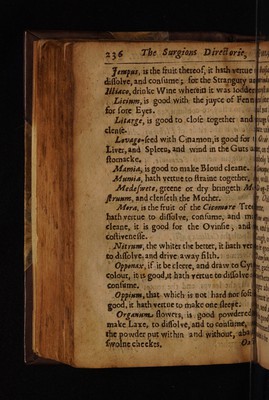 236 The Surgions Directorie,
Jempus, is the fruit thereof, it hath vertue
dissolve, and consume; for the Strangury
Illiaca, drinke Wine wherein it was sodden
Licium, is good with the juyce of Fen
for sore Eyes.
Litarge, is good to close together and
clense.
Lovage-seed with Cinamon, is good for
Liver, and Spleen, and wind in the Guts
stomacke.
Mamia, is good to make Bloud cleane.
Mumia, hath vertue to straine together,
Medesweta, greene or dry bringeth M
struum, and clenseth the Mother.
Mora, is the fruit of the Cicomore Tree
hath vertue to dissolve, consume, and m
cleane, it is good for the Quinsie, and
costivenesse.
Nitrum, the whiter the better, it hath ver
to dissolve, and drive away filth.
Opponax, if it be cleere, and draw to
colour, it is good, it hath vertue to dissolve
consume.
Oppium, that which is not hard nor soft
good, it hath vertue to make one sleepe.
Organum, flowers, is good powdered
make Laxe, to dissolve, and to consume,
the powder put within and without,
swolne cheekes.